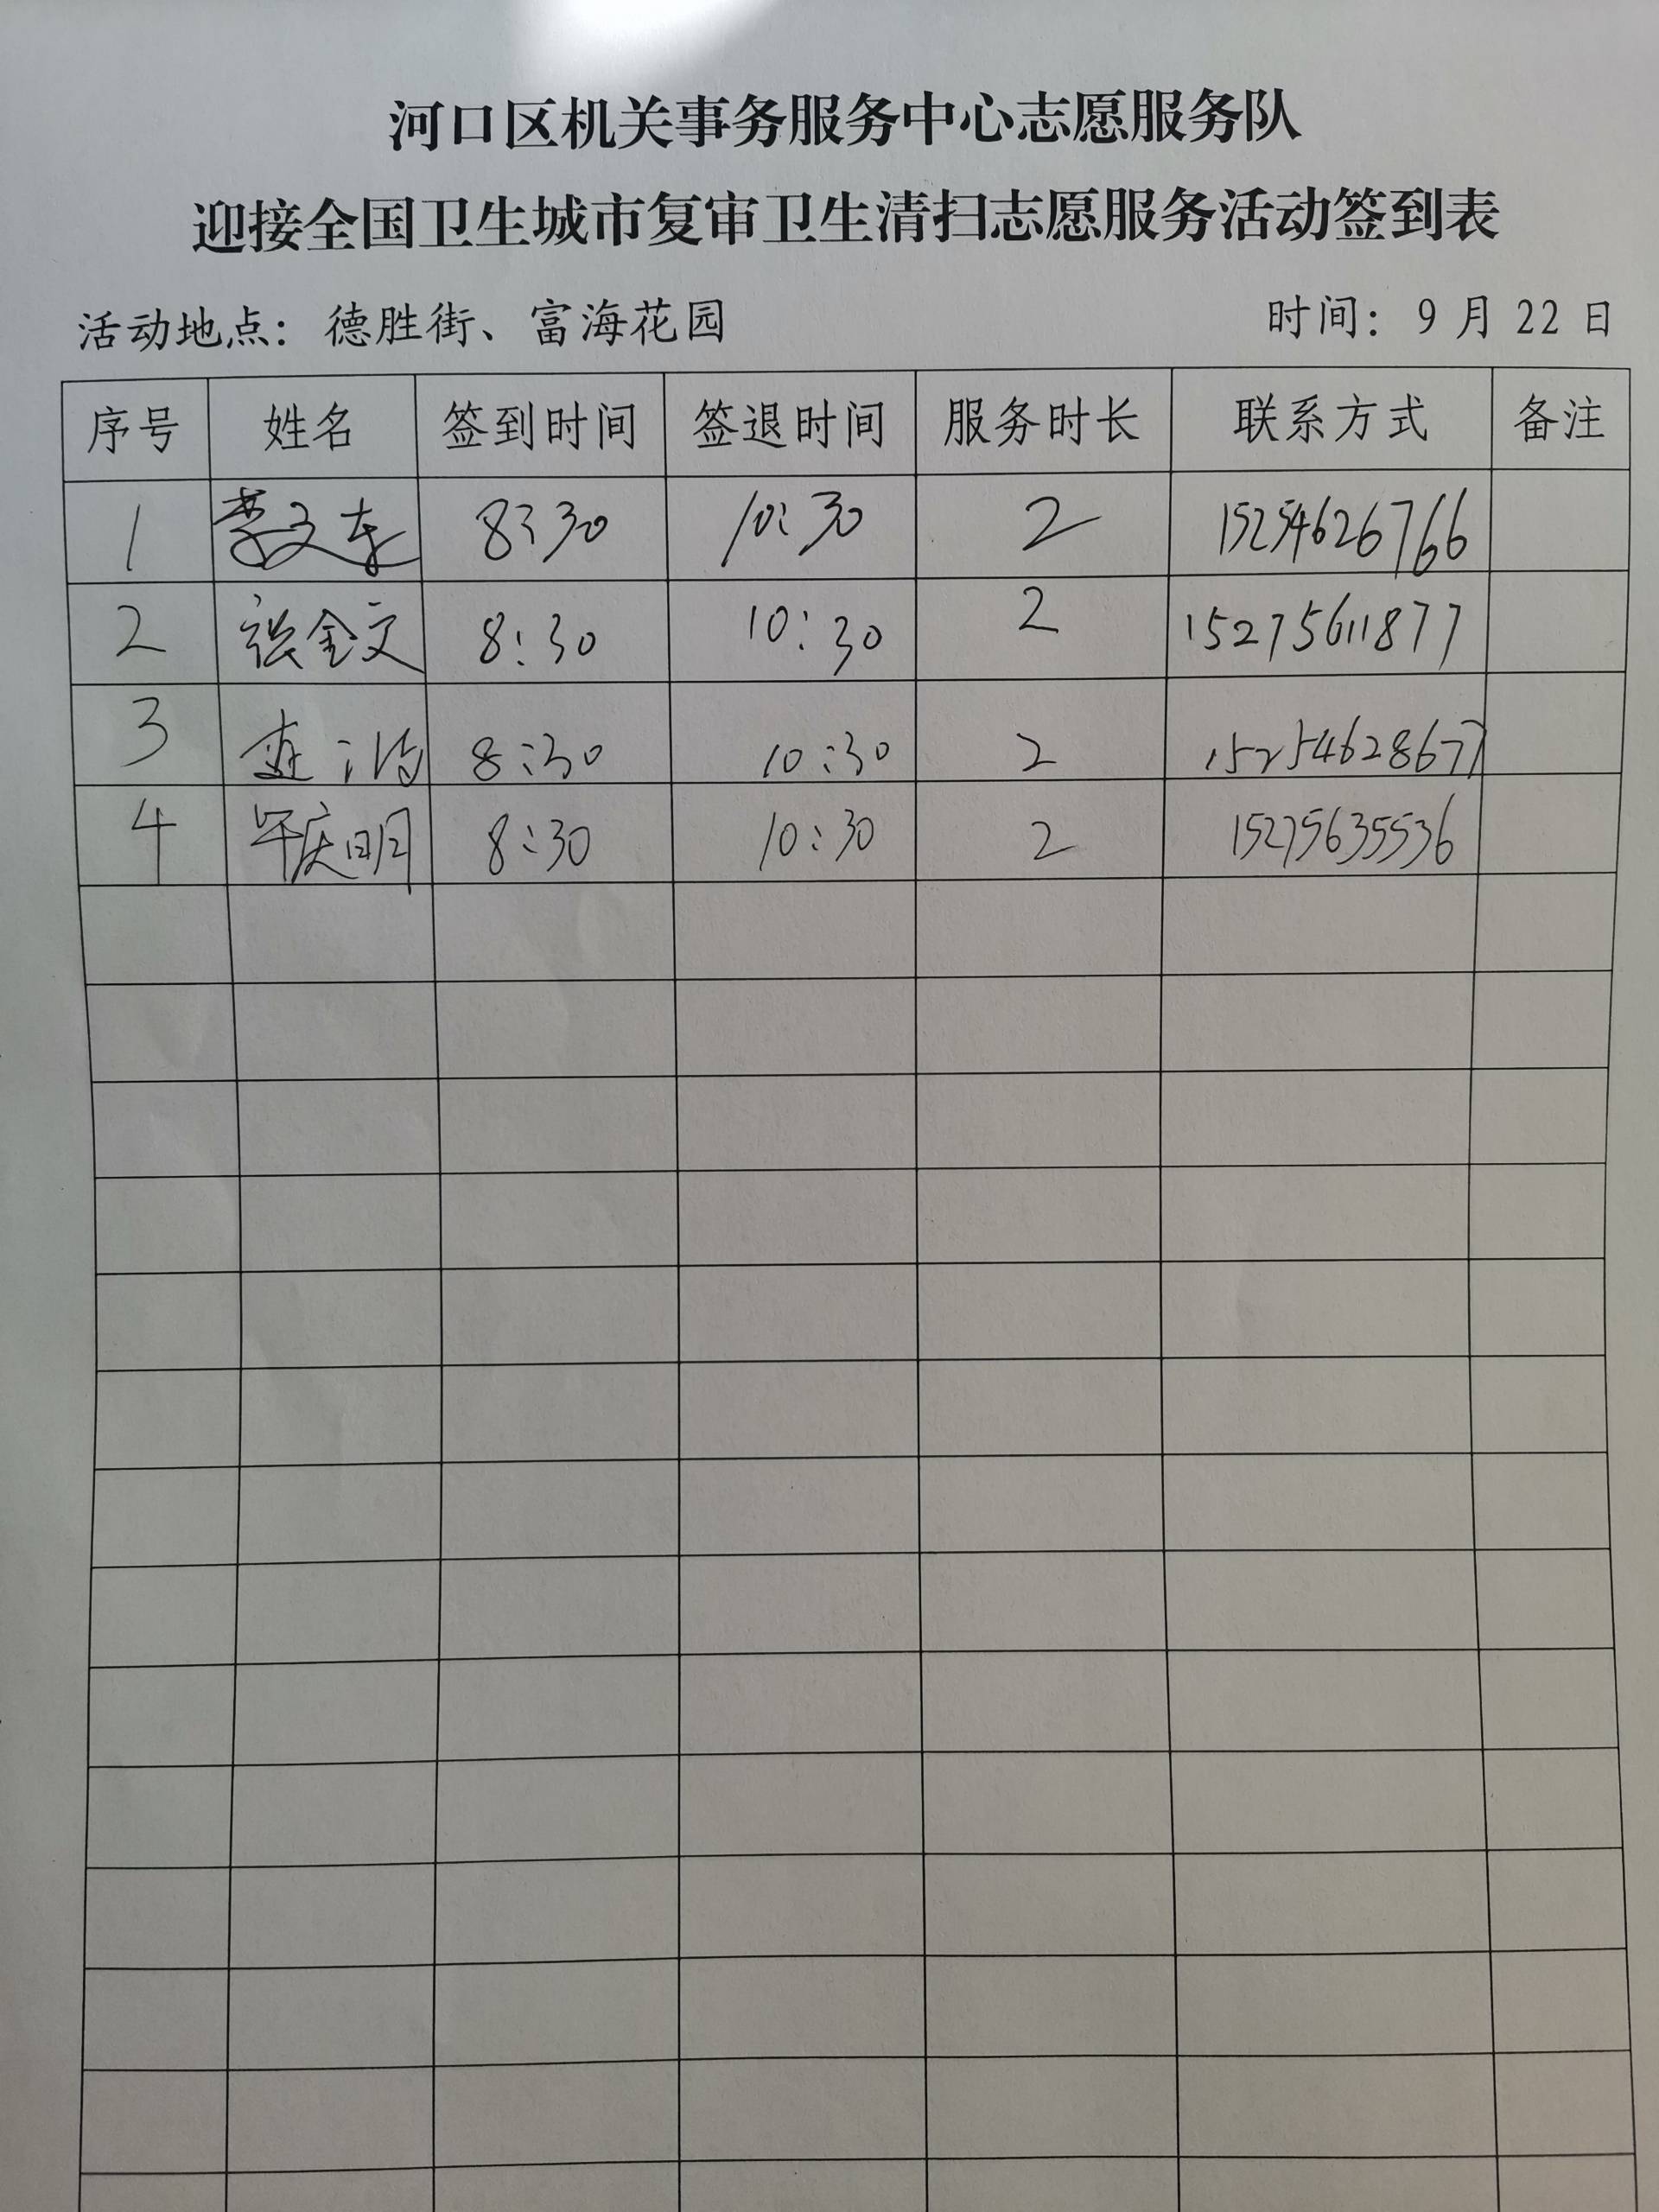 河口区机关事务服务中心志愿服务队
迎接全国卫生城市复审卫生清扫志愿服务活动签到表
活动地点：德胜街、富海花园 时间：9月22日
序号 姓名 签到时间 签退时间 服务时长 联系方式 备注
1 李文东 8:30 10:30 2 15254626766
2 张金文 8:30 10:30 2 15275611877
3 8:30 10:30 2 15254628677
4 庆明 8:30 10:30 2 15275635536